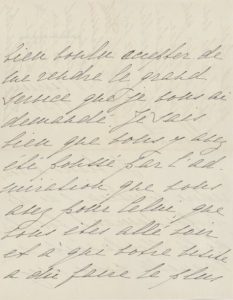 bien voulu accepter de
me rendre le grand
service que je vous ai
demandé. Je sais
bien que vous y avez
été poussé par l'ad
miration que vous
avez pour celui que
vous êtes allé voir
et à que votre visite
a dû faire le plus